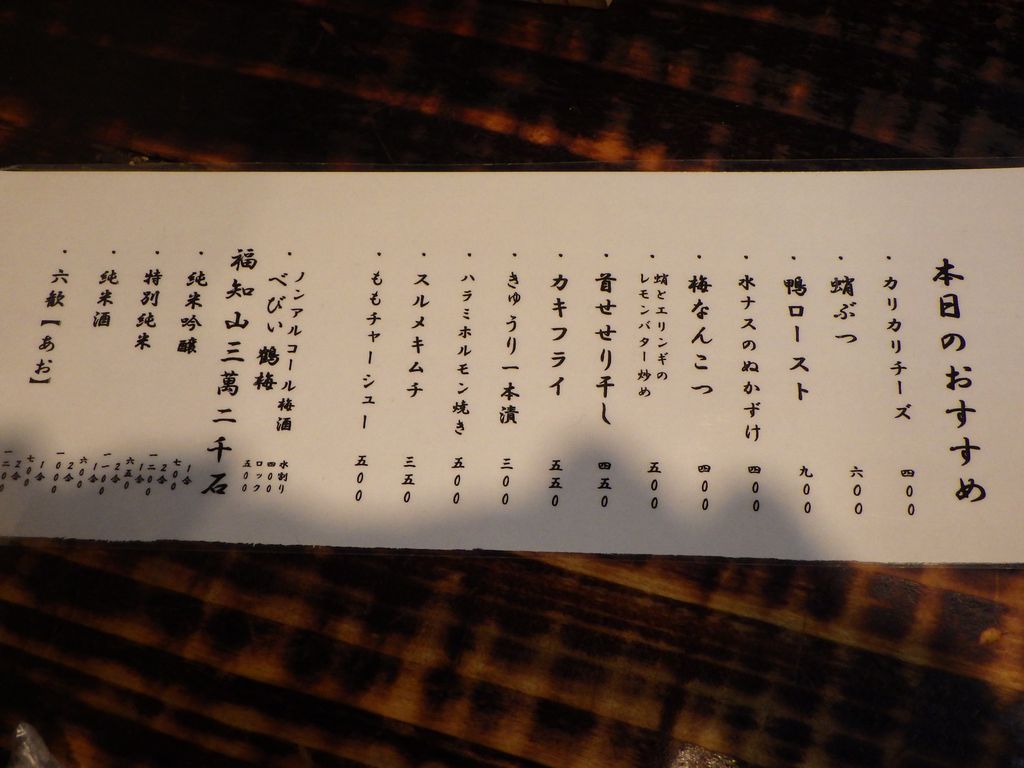 本日のおすすめ
・カリカリチーズ 四〇〇
・蛸ぶつ 六〇〇
・鴨ロースト 九〇〇
・水ナスのぬかずけ 四〇〇
・梅なんこつ 四〇〇
・蛸とエリンギの
レモンバター炒め 五〇〇
・首せせり干し 四五〇
・カキフライ 五五〇
・きゅうり一本漬 三〇〇
・ハラミホルモン焼き 五〇〇
・スルメキムチ 三五〇
・ももチャーシュー 五〇〇
・ノンアルコール梅酒
べびい鶴梅
水割り
四〇〇
ロック
五〇〇
福知山三萬二千石
・純米吟醸
1合
七〇〇
2合
一二〇〇
・特別純米
1合
六五〇
2合
一一〇〇
・純米酒
1合
六〇〇
2合
一〇〇〇
・六歓【あお】
1合
七〇〇
2合
一二〇〇